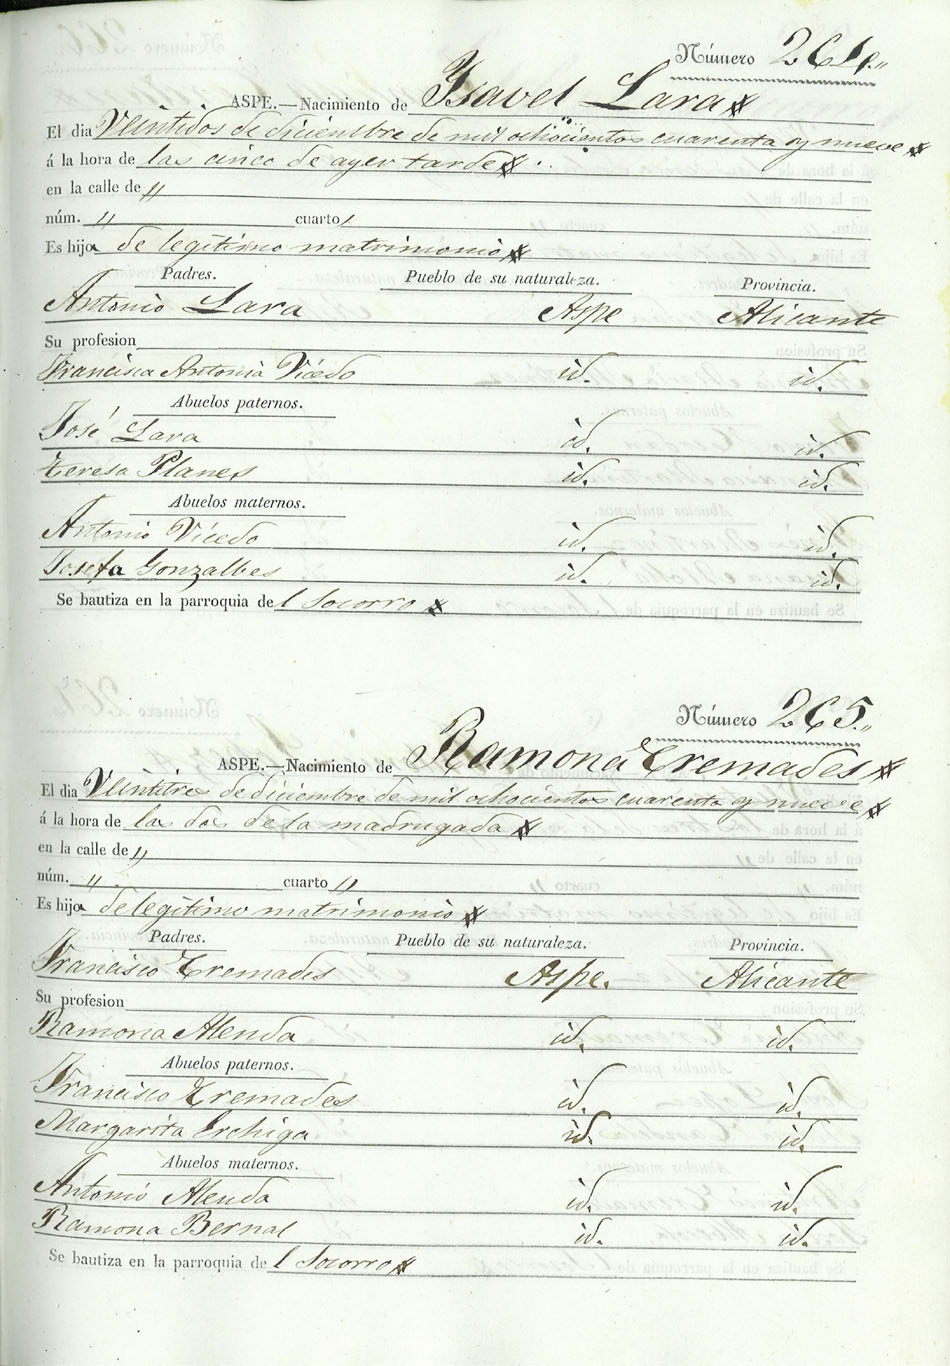 Número 264.
ASPE.—Nacimiento de Ysavel Lara
El dia Veintidos de diciembre de mil ochocientos cuarenta y nueve
á la hora de las cinco de ayer tarde
en la calle de "
núm. " cuarto "
Es hija de legítimo matrimonio
Padres. Pueblo de su naturaleza. Provincia.
Antonio Lara Aspe Alicante
Su profesion
Francisca Antonia Vicedo id. id.
Abuelos paternos.
José Lara id. id.
Teresa Planes id. id.
Abuelos maternos.
Antonio Vicedo id. id.
Josefa Gonzalbes id. id.
Se bautiza en la parroquia del Socorro
Número 265.
ASPE.—Nacimiento de Ramona Cremades
El dia Veintitres de diciembre de mil ochocientos cuarenta y nueve
á la hora de las dos de la madrugada
en la calle de "
núm. " cuarto "
Es hija de legitimo matrimonio
Padres. Pueblo de su naturaleza. Provincia.
Francisco Cremades Aspe. Alicante
Su profesion
Ramona Alenda id. id.
Abuelos paternos.
Francisco Cremades id. id.
Margarita id. id.
Abuelos maternos.
Antonio Alenda id. id.
Ramona Bernal id. id.
Se bautiza en la parroquia del Socorro